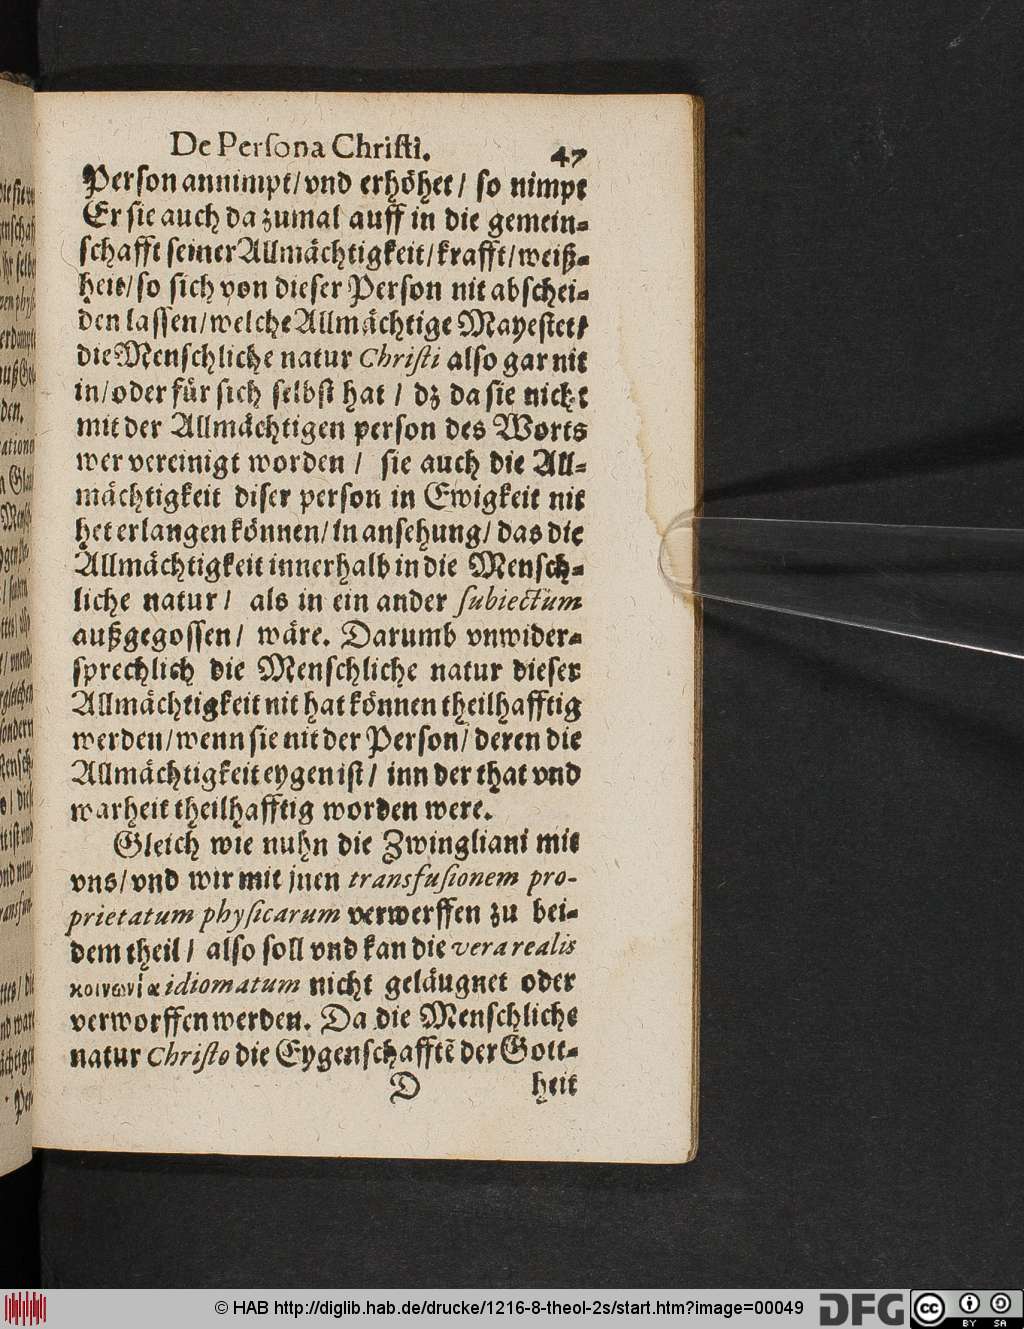 De Persona Christi. 47
Person annimpt/vnd erhöhet/ so nimpt
Er sie auch da zumal auff in die gemein-
schafft seiner Allmächtigkeit/krafft/weiß-
heit/so sich von dieser Person nit abschei-
den lassen/welche Allmächtige Mayestet/
die Menschliche natur Christi also gar nit
in/oder für sich selbst hat / dz da sie nicht
mit der Allmächtigen person des Worts
wer vereinigt worden / sie auch die All-
mächtigkeit diser person in Ewigkeit nit
het erlangen können/in ansehung/das die
Allmächtigkeit innerhalb in die Mensch-
liche natur/ als in ein ander subiectum
außgegossen/ wäre. Darumb vnwider-
sprechlich die Menschliche natur dieser
Allmächtigkeit nit hat können theilhafftig
werden/wenn sie nit der Person/deren die
Allmächtigkeit eygen ist/ inn der that vnd
warheit theilhafftig worden were.
Gleich wie nuhn die Zwingliani mit
vns/vnd wir mit jnen transfusionem pro-
prietatum physicarum verwerffen zu bei-
dem theil/ also soll vnd kan die vera realis
κοινωνία idiomatum nicht geläugnet oder
verworffen werden. Da die Menschliche
natur Christo die Eygenschafftē der Gott-
D heit
© HAB http://diglib.hab.de/drucke/1216-8-theol-2s/start.htm?image=00049
DFG
cc BY SA